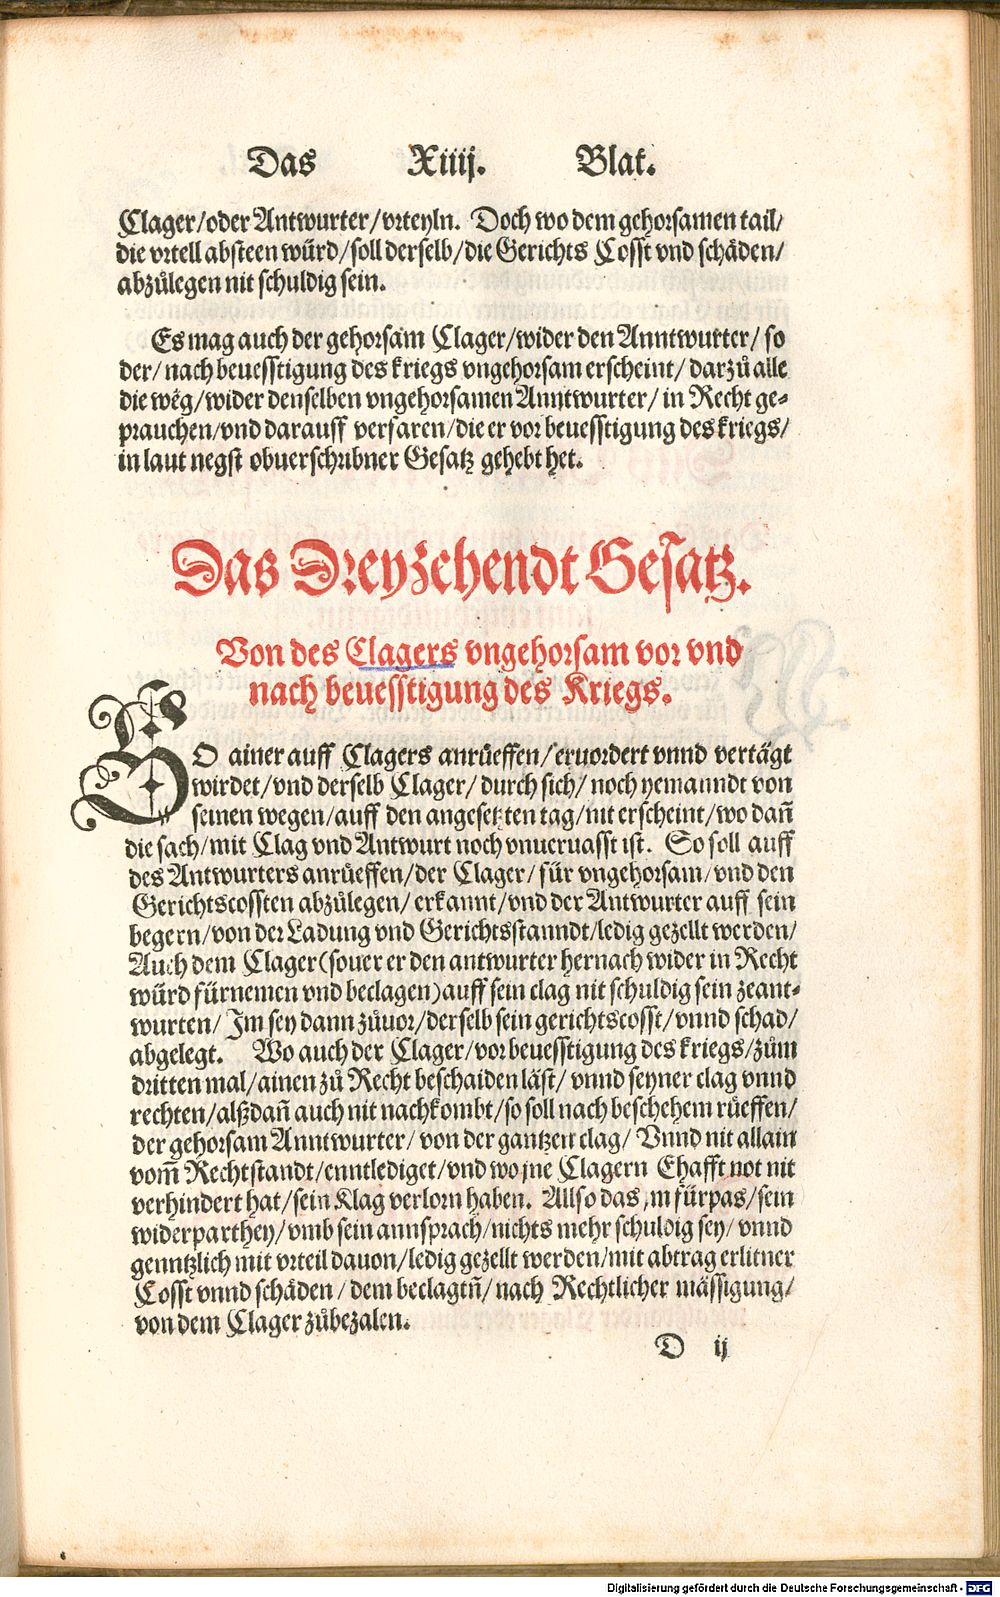 Das Xiiij. Blat.
Clager/oder Antwurter/vrteyln. Doch wo dem gehorsamen tail/
die vrtell absteen würd/soll derselb/die Gerichts Cosst vnd schäden/
abzůlegen nit schuldig sein.
Es mag auch der gehorsam Clager/wider den Anntwurter/ so
der/ nach beuesstigung des kriegs vngehorsam erscheint/ darzů alle
die wěg/wider denselben vngehorsamen Anntwurter/ in Recht ge-
prauchen/vnd darauff verfaren/die er vor beuesstigung des kriegs/
in laut negst obuerschribner Gesatz gehebt het.
Das Dreyzehendt Gesatz.
Von des Clagers vngehorsam vor vnd
nach beuesstigung des Kriegs.
SO ainer auff Clagers anrüeffen/eruordert vnnd vertägt
wirdet/vnd derselb Clager/ durch sich/ noch yemanndt von
seinen wegen/auff den angesetzten tag/nit erscheint/wo dañ
die sach/mit Clag vnd Antwurt noch vnueruasst ist. So soll auff
des Antwurters anrüeffen/der Clager/ für vngehorsam/vnd den
Gerichtscossten abzůlegen/ erkannt/vnd der Antwurter auff sein
begern/von der Ladung vnd Gerichtsstanndt/ledig gezellt werden/
Auch dem Clager(souer er den antwurter hernach wider in Recht
würd fürnemen vnd beclagen)auff sein clag nit schuldig sein zeant-
wurten/ Im sey dann zůuor/derselb sein gerichtscosst/vnnd schad/
abgelegt. Wo auch der Clager/vor beuesstigung des kriegs/zům
dritten mal/ainen zů Recht beschaiden läst/ vnnd seyner clag vnnd
rechten/alßdañ auch nit nachkombt/so soll nach beschehem rüeffen/
der gehorsam Anntwurter/ von der gantzen clag/ Vnnd nit allain
vom̃ Rechtstandt/enntlediget/vnd wo jne Clagern Ehafft not nit
verhindert hat/sein Klag verlorn haben. Allso das jm fürpas/sein
widerparthey/vmb sein annsprach/nichts mehr schuldig sey/ vnnd
genntzlich mit vrteil dauon/ledig gezellt werden/mit abtrag erlitner
Cosst vnnd schäden/dem beclagtñ/nach Rechtlicher mässigung/
von dem Clager zůbezalen.
D ij
Digitalisierung gefördert durch die Deutsche Forschungsgemeinschaft - DFG